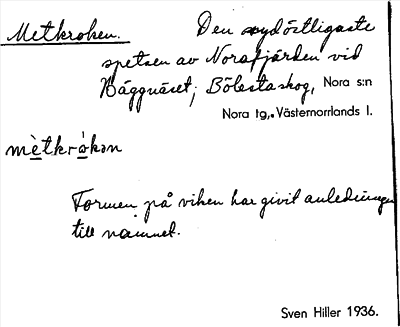 Metkroken. Den sydöstligaste
spetsen av Norafjärden vid
Häggnäset, Bölestaskog, Nora s:n
Nora tg., Västernorrlands l.
mètkrókən
Formen på viken har givit anledningen
till namnet.
Sven Hiller 1936.